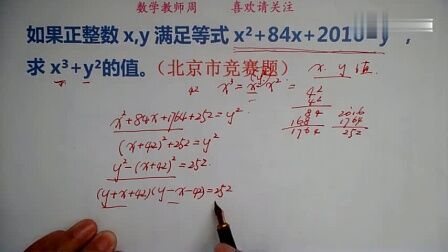 数学教师周 喜欢请关注
如果正整数 x,y 满足等式 x²+84x+2016=y² ,
求 x³+y²的值。(北京市竞赛题)
x y 值
x³ = x² x²
x²+84x+1764+252=y²
(x+42)²+252=y²
y²-(x+42)²=252.
(y+x+42)(y-x-42)=252
42
42
84
168
1764
2016
1764
252